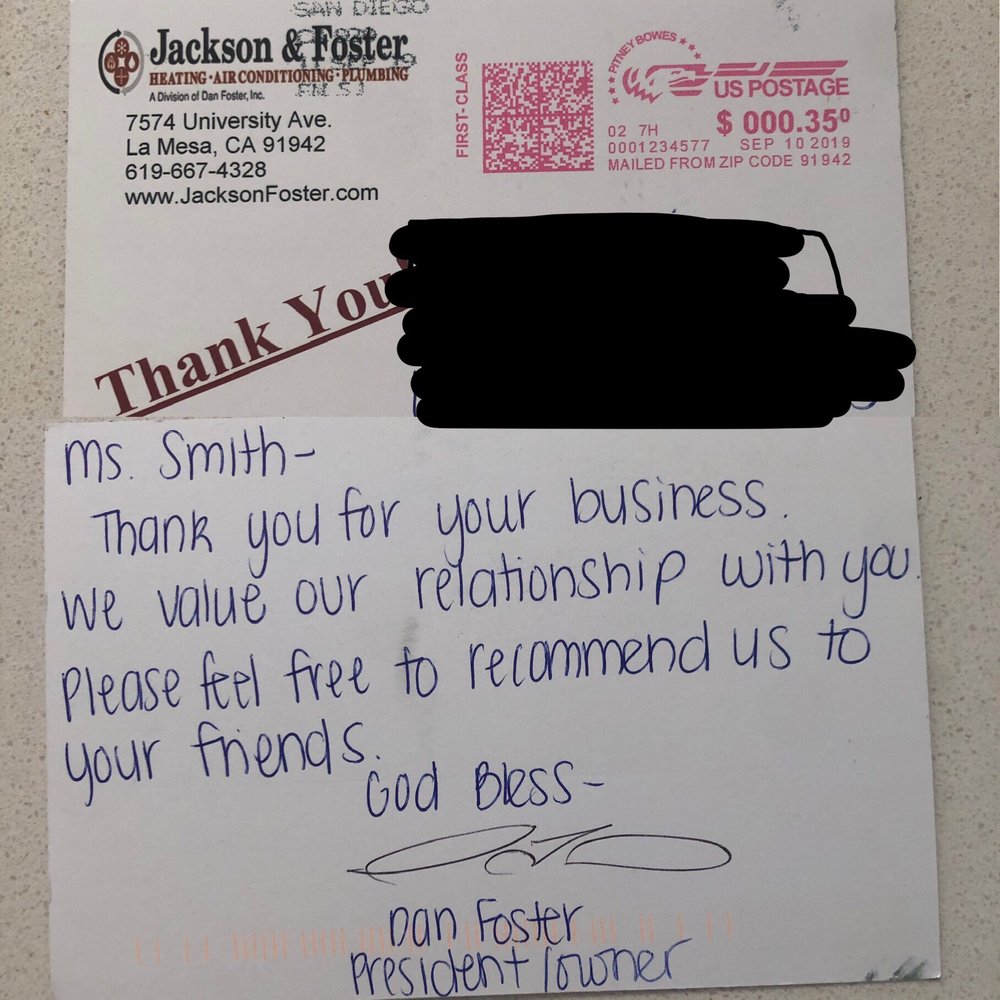 SAN DIEGO
Jackson & Foster
HEATING · AIR CONDITIONING · PLUMBING
A Division of Dan Foster, Inc.
7574 University Ave.
La Mesa, CA 91942
619-667-4328
www.JacksonFoster.com
FIRST-CLASS
PITNEY BOWES
US POSTAGE
$ 000.35⁰
02 7H
0001234577 SEP 10 2019
MAILED FROM ZIP CODE 91942
Thank You
Ms. Smith-
Thank you for your business.
We value our relationship with you.
Please feel free to recommend us to
your friends.
God Bless-
Dan Foster
President/owner